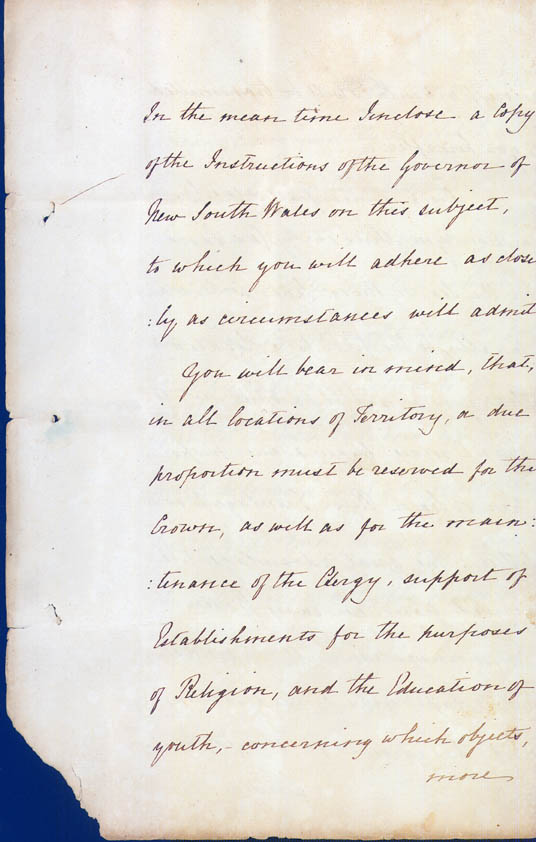 In the mean time I enclose a Copy
of the Instructions of the Governor of
New South Wales on this subject,
to which you will adhere as close
:ly as circumstances will admit
You will bear in mind, that,
in all locations of Territory, a due
proportion must be reserved for the
Crown, as well as for the main:
:tenance of the Clergy, support of
Establishments for the purposes
of Religion, and the Education of
youth, - concerning which objects,
more